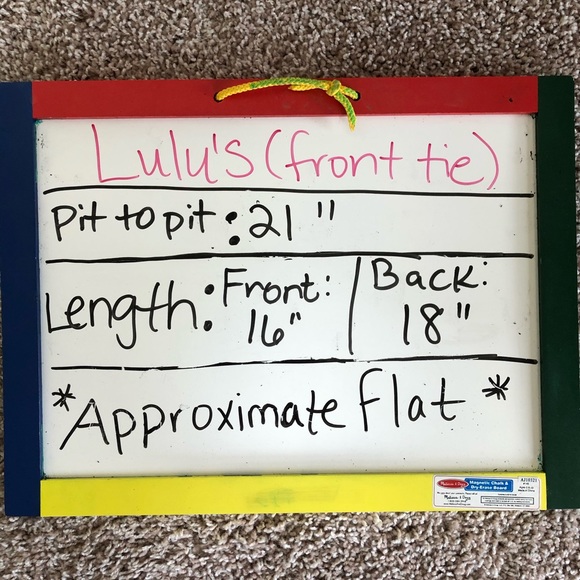 Lulu's (front tie)
Pit to pit: 21"
Length: Front: 16" | Back: 18"
*Approximate flat*
Melissa & Doug
Magnetic Chalk &
Dry-Erase Board